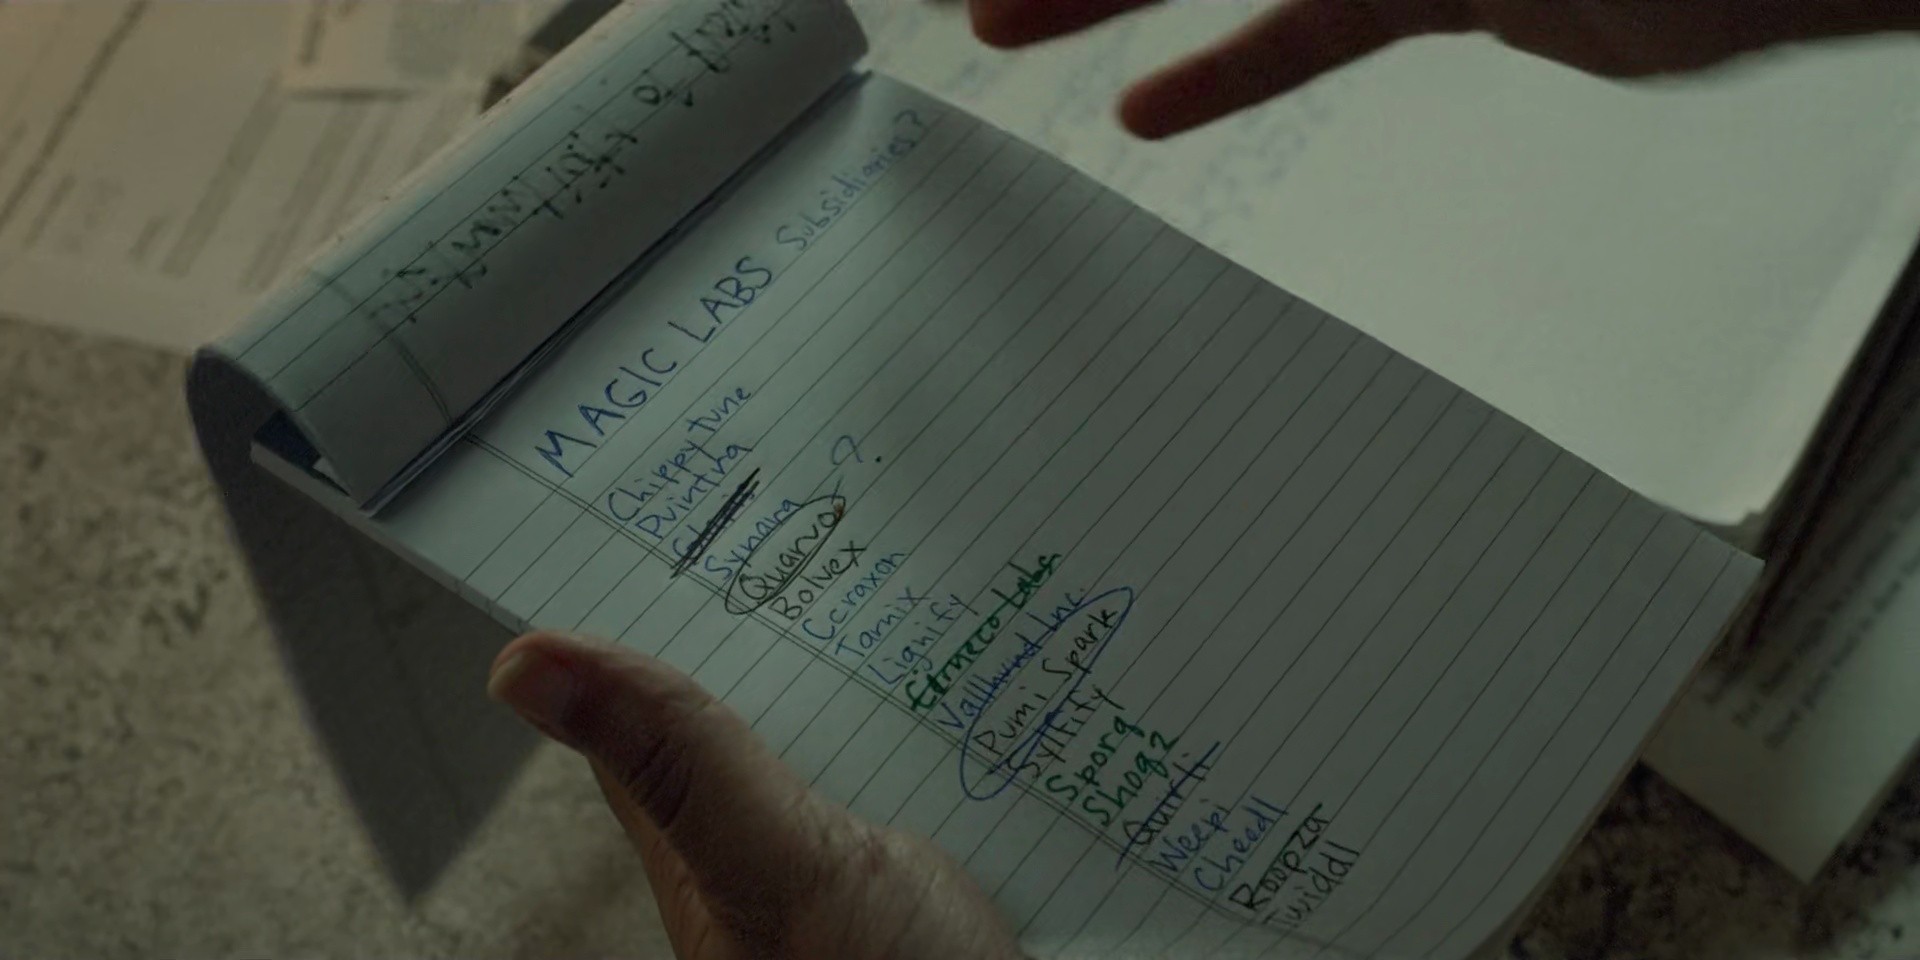 MAGIC LABS Subsidiaries?
Chippytune
Pvintra
Synaira
Quarvo ?
Bolvex
Ccraxon
Tarnix
Lignify
Cirneco Labs
Vallhund Inc.
Pumi Spark
Sylfify
Sporq
Shoq2
Quirli
Weepi
Cheedl
Roopza
Twiddl